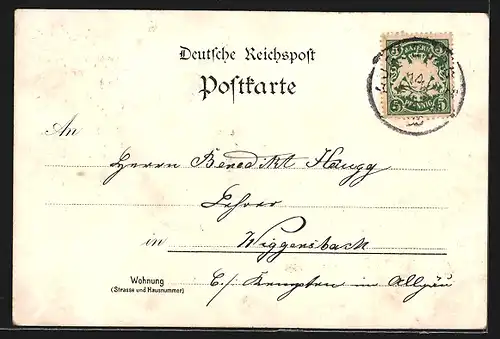 Deutsche Reichspost
Postkarte
5 BAYERN 5
5 PFENNIG 5
An
Herrn Benedikt Haugg
Lehrer
in Wiggensbach
b./ Kempten im Allgäu
Wohnung
(Strasse und Hausnummer)